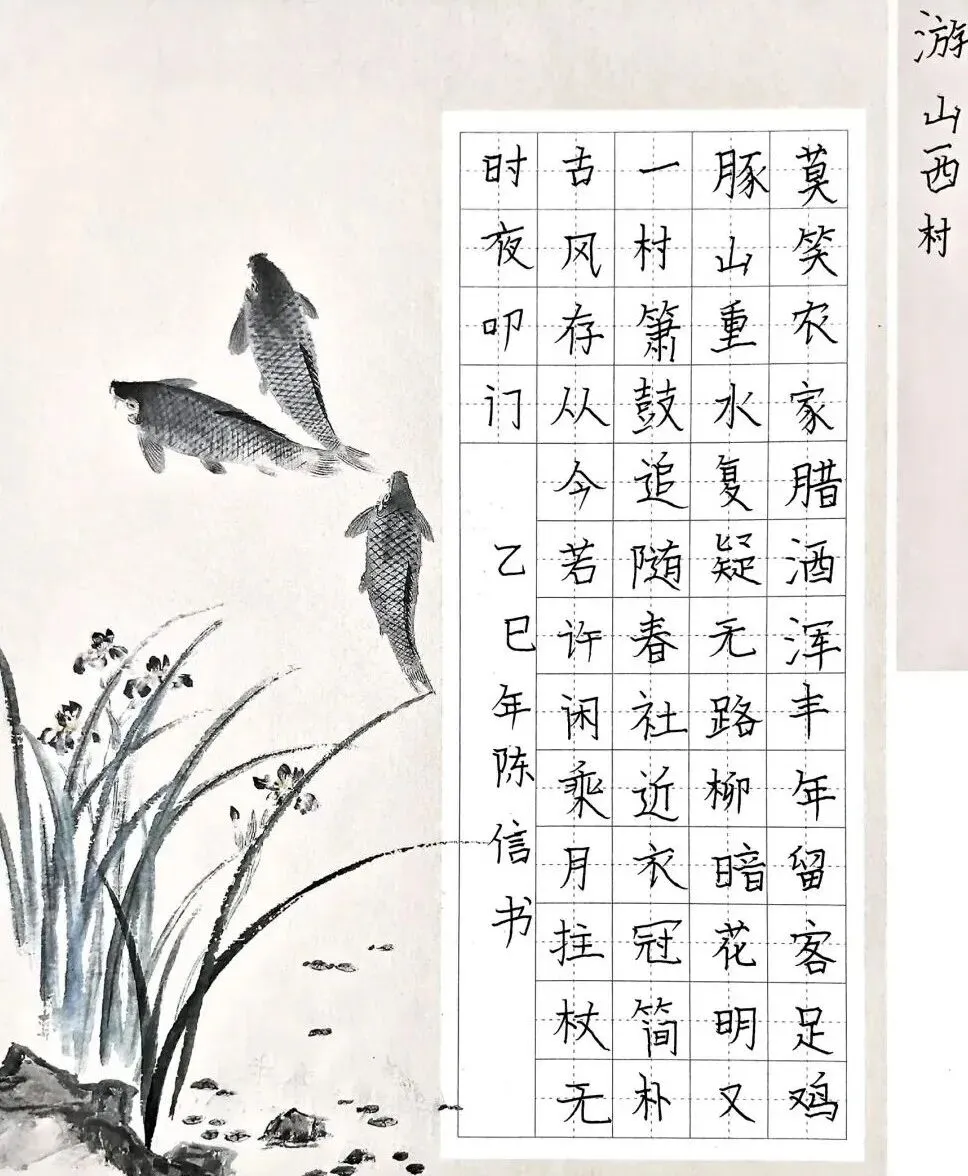 游山西村
莫笑农家腊酒浑丰年留客足鸡
豚山重水复疑无路柳暗花明又
一村箫鼓追随春社近衣冠简朴
古风存从今若许闲乘月拄杖无
时夜叩门
乙巳年陈信书